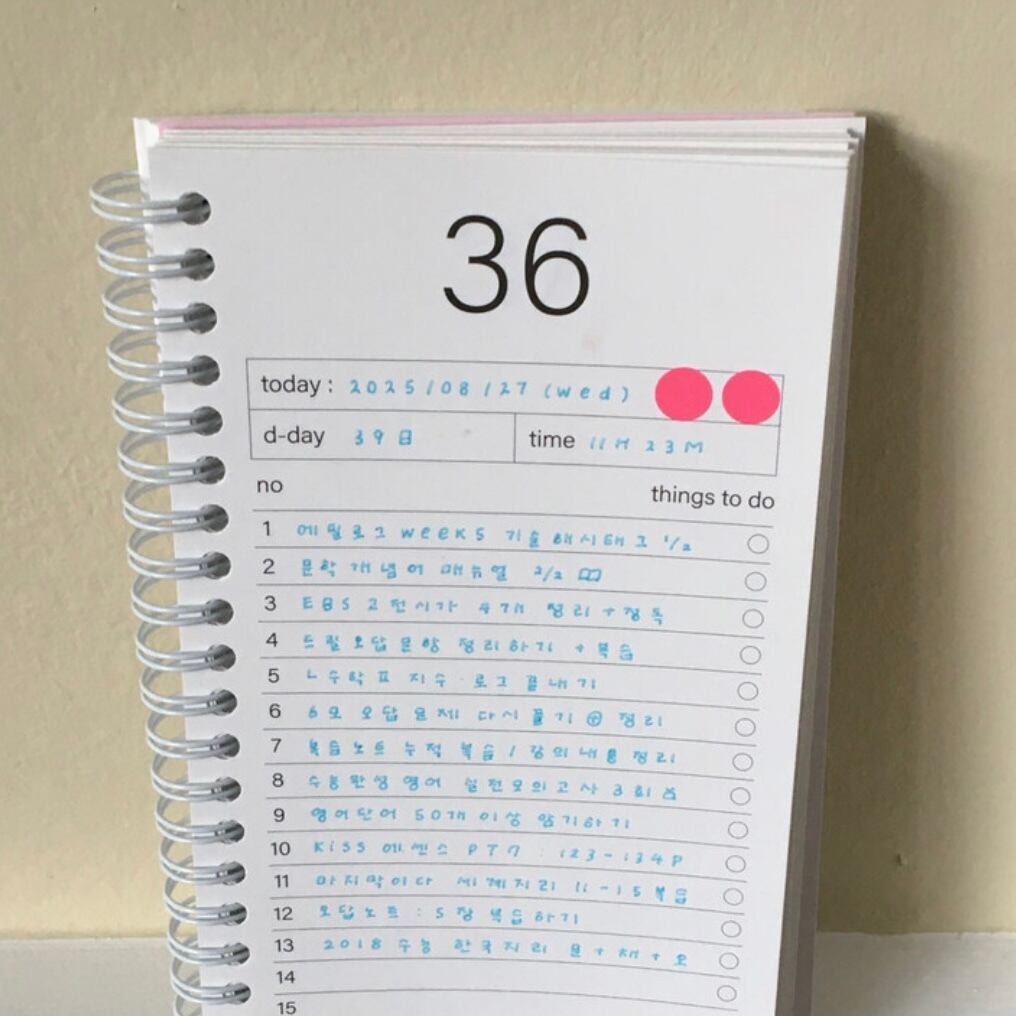 36
today : 2025/08/27 (wed)
d-day 39日 time 11H 23M
no things to do
1 에필로그 weeks 기출 해시태그 1/2
2 문학 개념어 매뉴얼 2/2
3 EBS 고전시가 4개 정리 + 정독
4 드릴 오답문항 정리하기 + 복습
5 수학 지수·로그 끝내기
6 6모 오답 문제 다시 풀기 ⊕ 정리
7 복습노트 누적 복습 / 강의내용 정리
8 수능완성 영어 실전모의고사 3회
9 영어단어 50개 이상 암기하기
10 KISS 에센스 PT7 : 123-134P
11 마지막이다 세계지리 11-15 복습
12 오답노트 : 5장 복습하기
13 2018 수능 한국지리 문+채+오
14
15